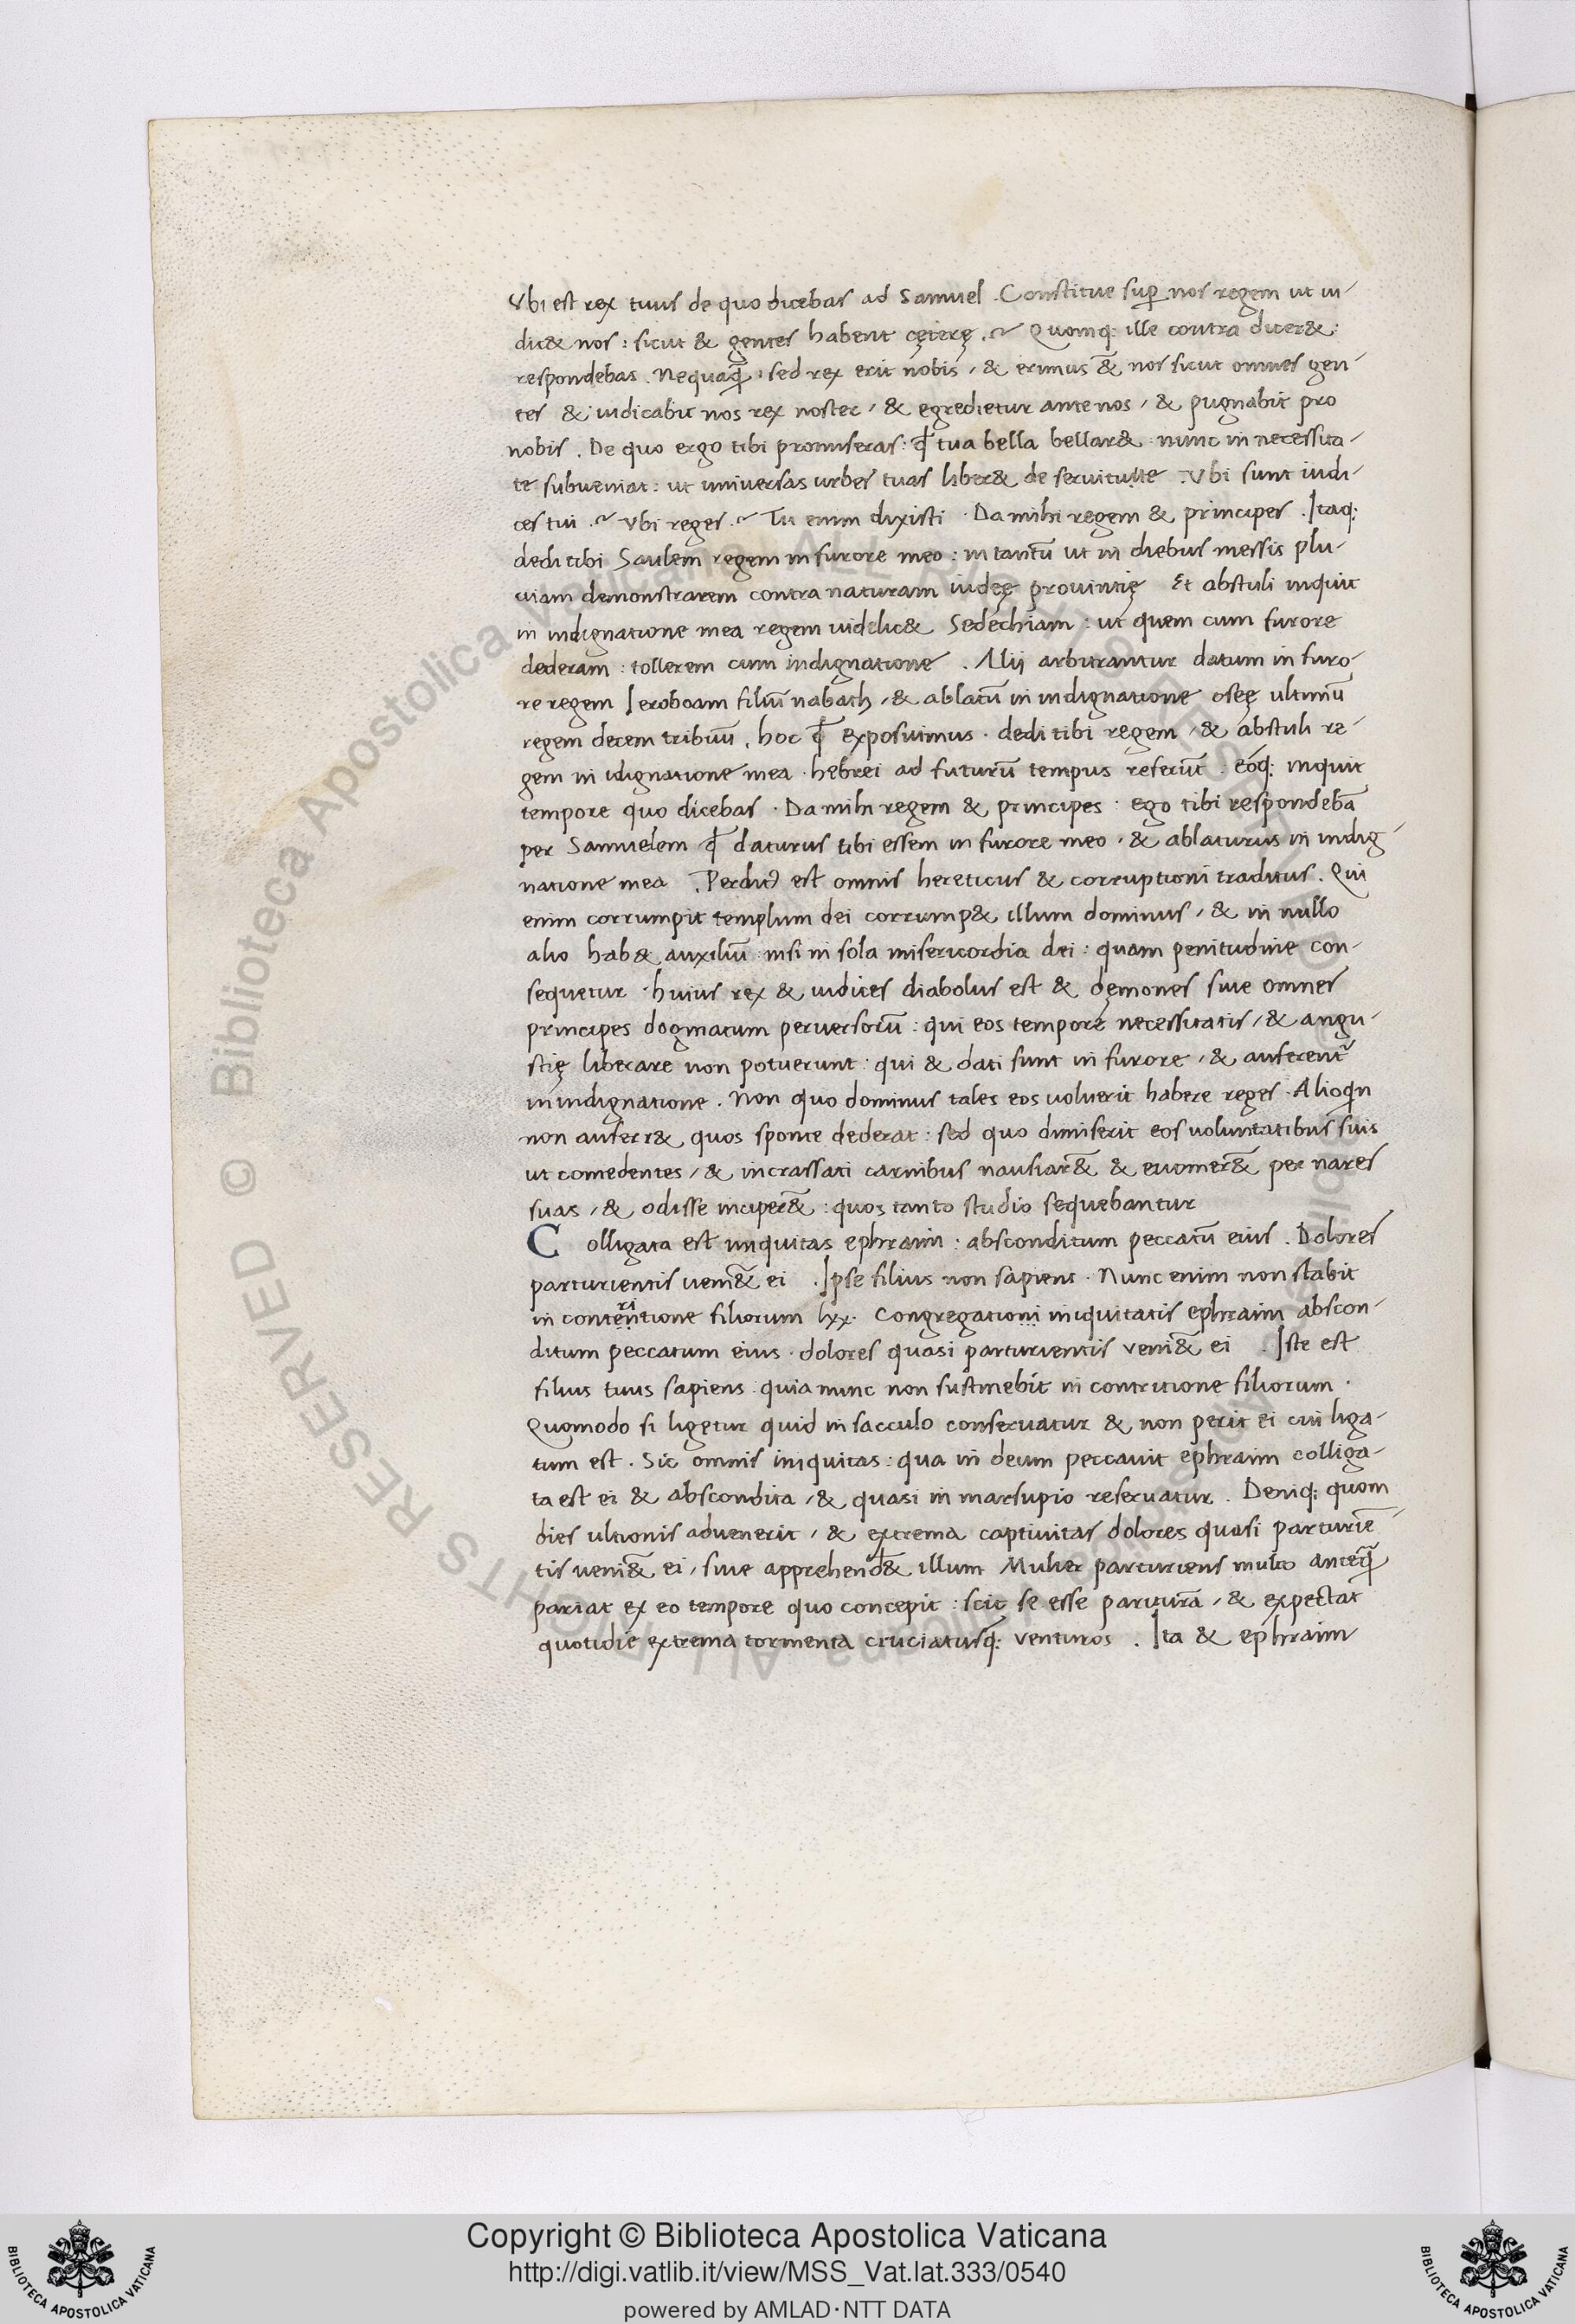 Vbi est rex tuus de quo dicebas ad Samuel . Constitue sup̱ nos regem ut iu-
dic& nos : sicut & gentes habent cęterę .~ Quomq; ille contra dicer& :
respondebas . Nequaq̄ : sed rex erit nobis / & erimus &̄ nos sicut omnes gen-
tes & iudicabit nos rex noster / & egredietur ante nos / & pugnabit pro
nobis . De quo ergo tibi promiseras : ꝙ tua bella bellar& : nunc in necessita-
te subueniat : ut uniuersas urbes tuas liber& de seruitutte . Vbi sunt iudi-
ces tui .~ Vbi reges .~ Tu enim dixisti . Da mihi regem & principes . Itaq;
dedi tibi Saulem regem in furore meo : in tantū ut in diebus messis plu-
uiam demonstrarem contra naturam iudęę prouintię Et abstuli inquit
in indignatione mea regem uidelic& Sedechiam : ut quem cum furore
dederam : tollerem cum indignatione . Alij arbitrantur datum in furo-
re regem Ieroboam filiū nabath / & ablatū in indignatione oseę ultimū
regem decem tribuū . hoc ꝙ exposuimus . dedi tibi regem / & abstuli re-
gem in idignatione mea . hebrei ad futurū tempus referūt . eóq; inquit
tempore quo dicebas . Da mihi regem & principes : ego tibi respondebā
per Samuelem ꝙ daturus tibi essem in furore meo / & ablaturus in indig-
natione mea . Perdit᷒ est omnis hereticus & corruptioni traditus . Qui
enim corrumpit templum dei corrump& illum dominus / & in nullo
alio hab& auxiliū : nisi in sola misericordia dei : quam penitudine con-
sequetur . huius rex & iudices diabolus est & dęmones siue omnes
principes dogmatum peruersorū : qui eos tempore necessitatis / & angu-
stię liberare non potuerunt : qui & dati sunt in furore / & auferent᷑
in indignatione . Non quo dominus tales eos uoluerit habere reges . Alioqn
non auferr& quos sponte dederat : sed quo dimiserit eos uoluntatibus suis
ut comedentes / & incrassati carnibus nausiar&̄ & euomer&̄ per nares
suas / & odisse inciper&̄ : quos tanto studio sequebantur
Colligata est iniquitas ephraim : absconditum peccatū eius . Dolores
parturientis ueni&̄ ei . Ipse filius non sapiens . Nunc enim non stabit
ri
in contentione filiorum lxx . Congregationi iniquitatis ephraim abscon-
ditum peccatum eius . dolores quasi parturientis veni&̄ ei . Iste est
filius tuus sapiens : quia nunc non sustinebit in contritione filiorum .
Quomodo si ligetur quid in sacculo conseruatur & non perit ei cui liga-
tum est . Sic omnis iniquitas : qua in deum peccauit ephraim colliga-
ta est ei & abscondita / & quasi in marsupio reseruatur . Deniq; quom
dies ultionis aduenerit / & extrema captiuitas dolores quasi parturiē-
tis ueni&̄ ei / siue apprehend&̄ illum Mulier parturiens multo anteq̄
pariat ex eo tempore quo concepit : scit se esse pariturā / & expectat
quotidie extrema tormenta cruciatusq; venturos . Ita & ephraim
Copyright © Biblioteca Apostolica Vaticana
http://digi.vatlib.it/view/MSS_Vat.lat.333/0540
powered by AMLAD·NTT DATA
BIBLIOTECA APOSTOLICA VATICANA
BIBLIOTECA APOSTOLICA VATICANA